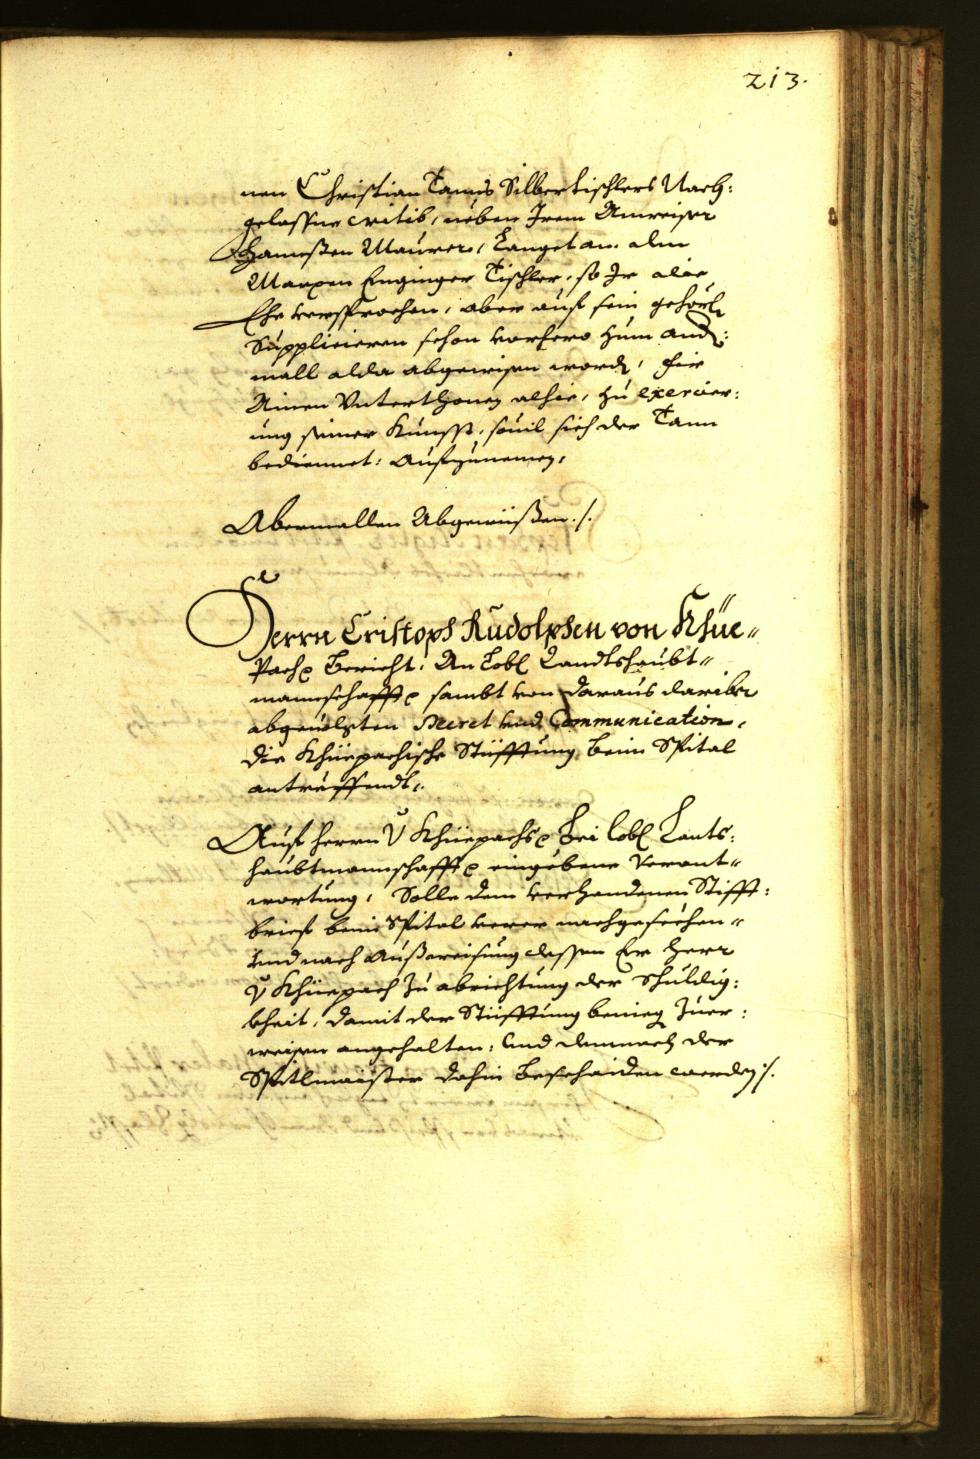 213.
nen Christian Tanns Silbertischlers Nach:
gelassne wittib, neben Irem Anweiser
Hannßen Maurer, langet an. den
Marxen Enginger Tischler, so Ir die
Ehe versprochen, aber auf sein gehörl
Supplicieren schon vorhero zum and:
mall alda abgewisen word, für
Ainen Unterthonen alhie, zu exercier:
ung seiner Kunst, souil sich der Tann
bediennet, aufzunemen,
Abermallen Abgewüßen ./.
Herrn Cristoph Rudolphen von Khüe"
Pach Bericht, An Lobl Landtshaubt"
mannschafft sambt von daraus dariber
abgeuolgten Decret und Communication,
die Khüepachische Stüfftung beim Spital
antreffendt.
Auf herrn V Khüepachs bei lobl Lants:
haubtmannschafft eingebene Verant"
wortung, Solle dem verhandenen Stifft:
brief beim Spital verer nachgesechen"
und nach Außweisung dessen Er Herr
V Khüepach zu abrichtung der schuldig:
kheit, damit der Stüfftung benieg zuer:
weisen angehalten, und demnach der
Spitlmaister dahin beschaiden werden ./.